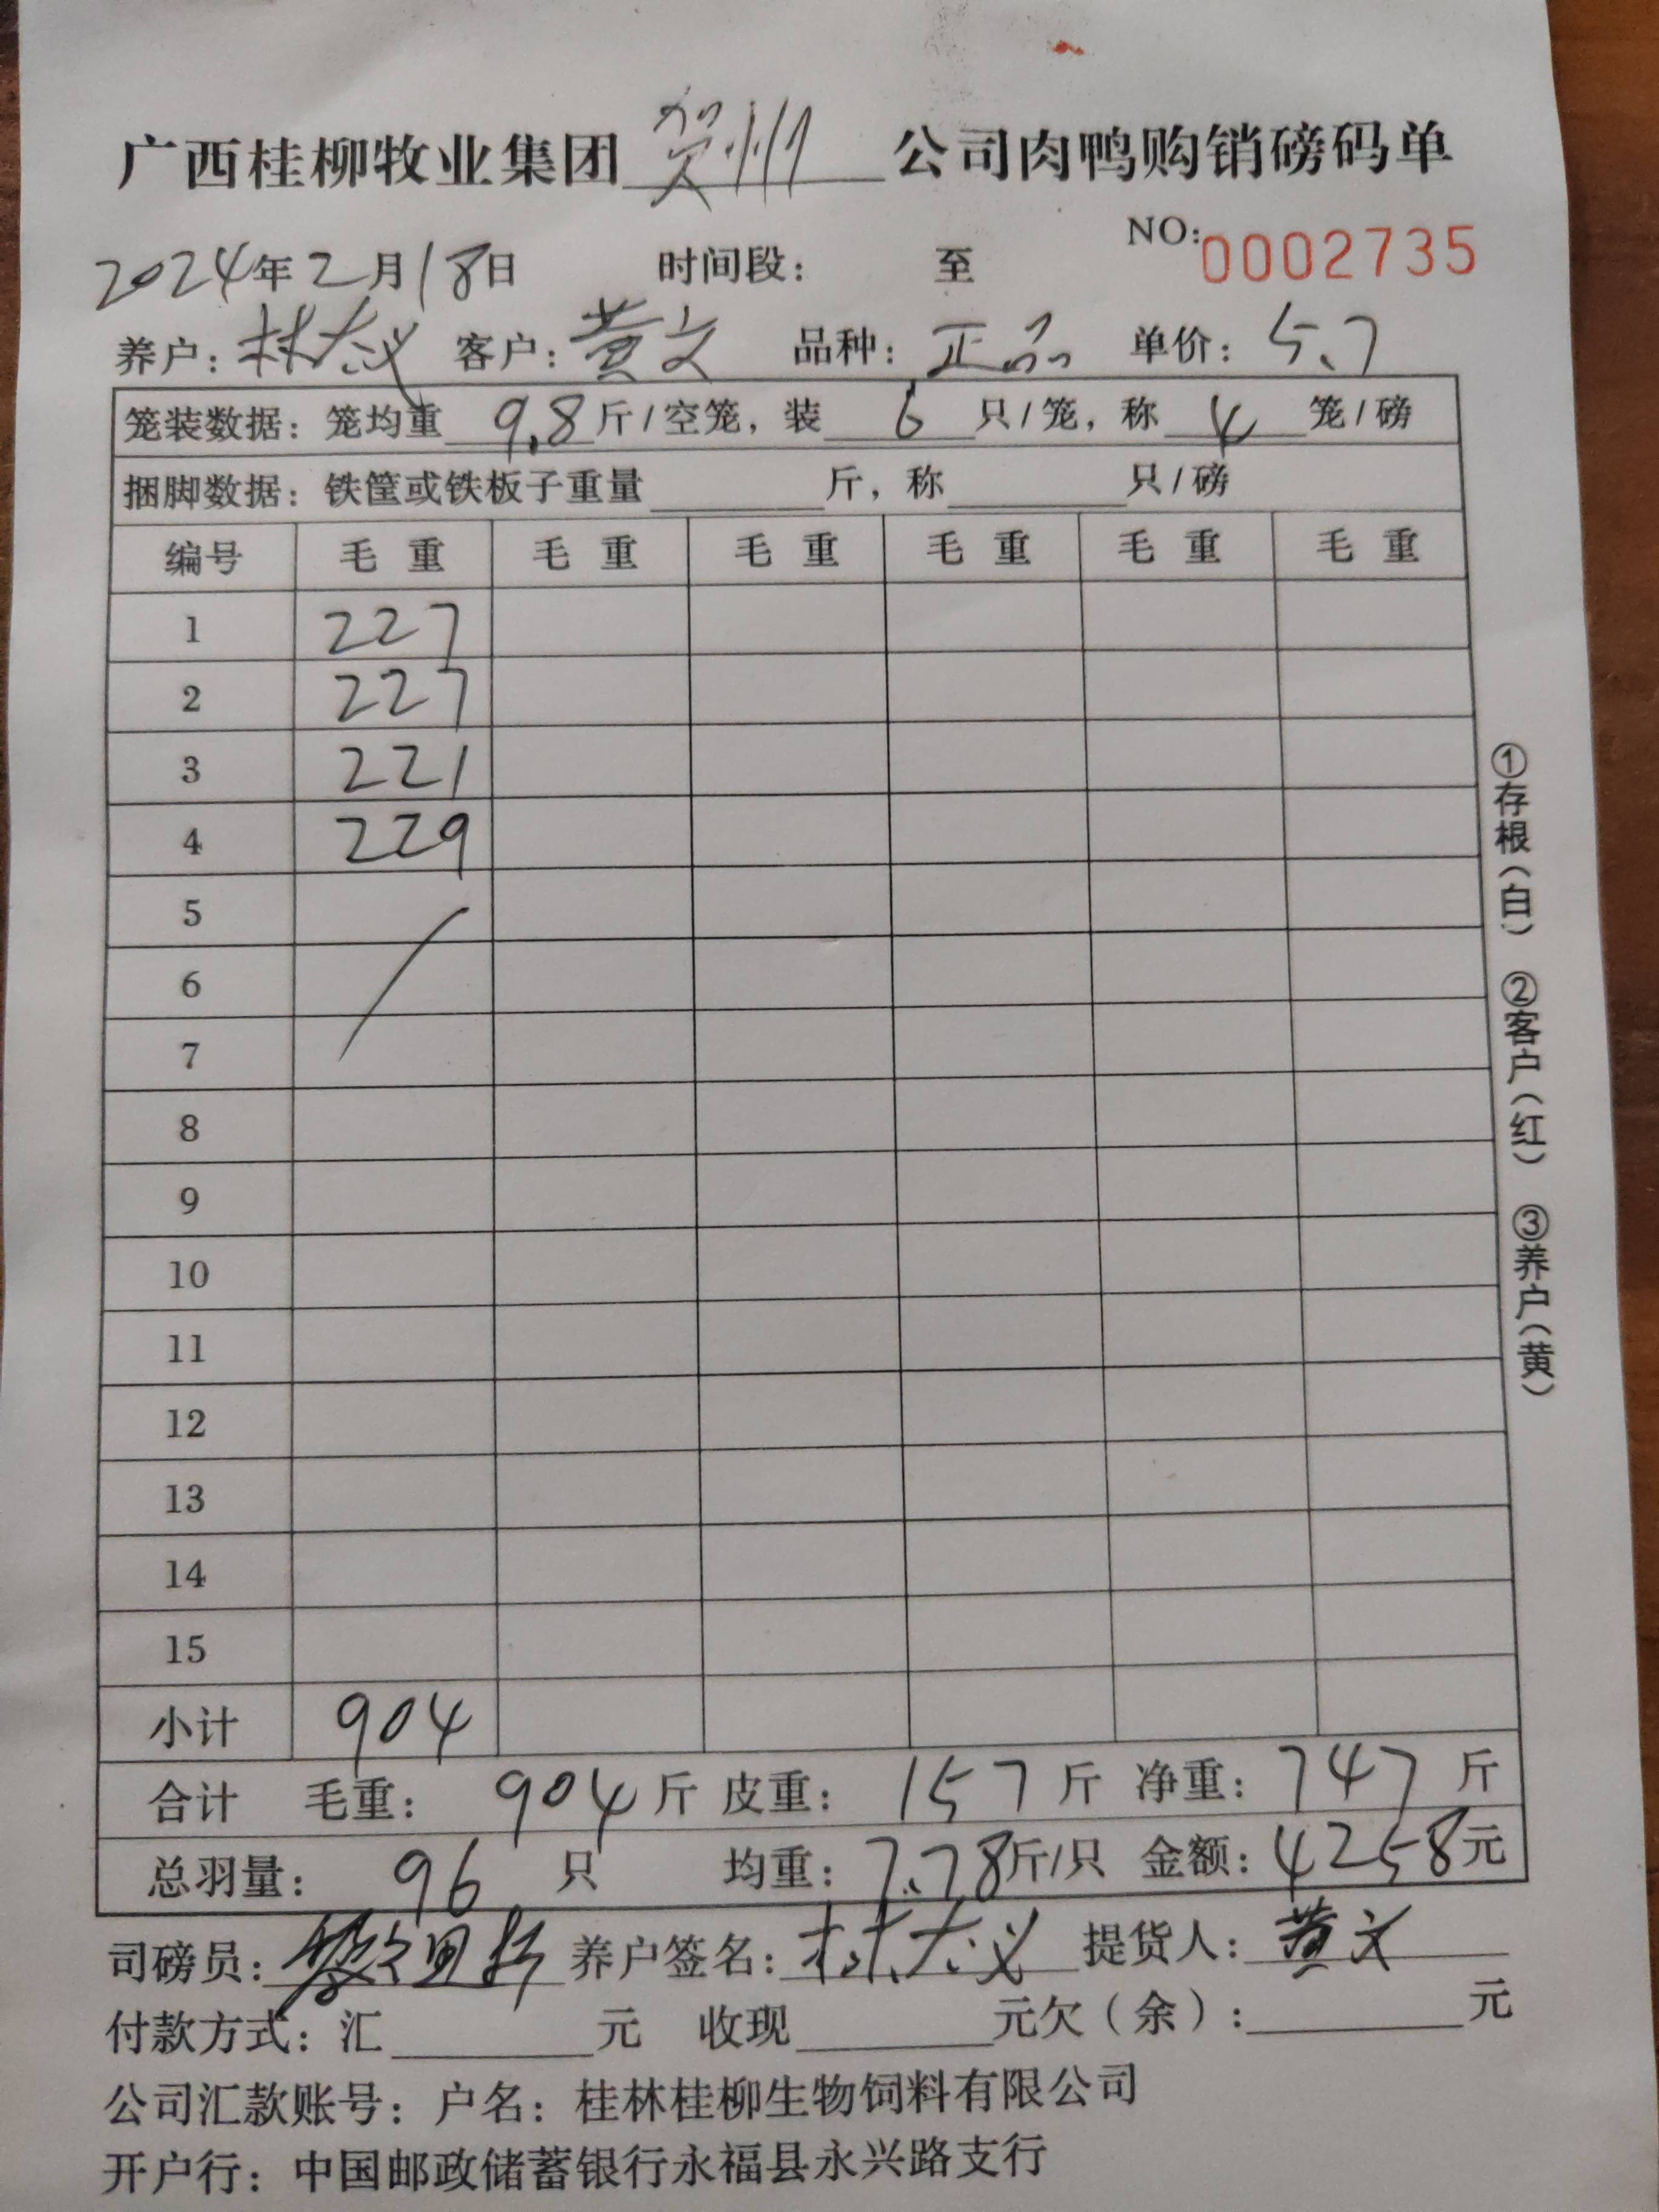 广西桂柳牧业集团贺州公司肉鸭购销磅码单
NO:0002735
2024年2月18日 时间段： 至
养户：林太义 客户：黄文 品种：正品 单价：5.7
笼装数据：笼均重9.8斤/空笼，装6只/笼，称4笼/磅
捆脚数据：铁筐或铁板子重量 斤，称 只/磅
编号 毛重 毛重 毛重 毛重 毛重 毛重
1 227
2 227
3 221
4 229
5
6
7
8
9
10
11
12
13
14
15
小计 904
合计 毛重：904斤 皮重：157斤 净重：747斤
总羽量：96只 均重：7.78斤/只 金额：4258元
司磅员： 养户签名：林太义 提货人：黄文
付款方式：汇 元 收现 元欠（余）： 元
公司汇款账号：户名：桂林桂柳生物饲料有限公司
开户行：中国邮政储蓄银行永福县永兴路支行
①存根（白） ②客户（红） ③养户（黄）